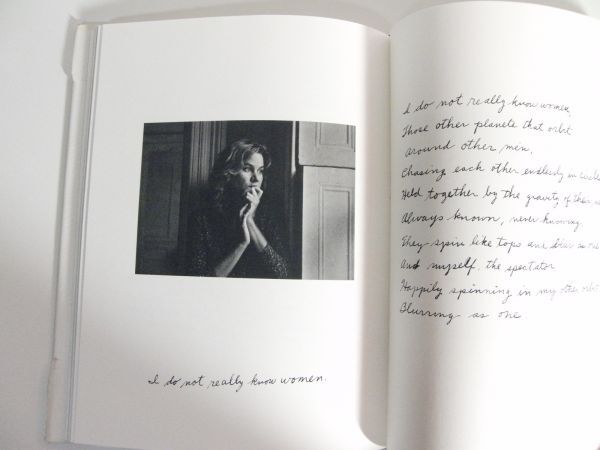 I do not really know women.
I do not really know women,
Those other planets that orbit
around other men,
Chasing each other endlessly in
Held together by the gravity of their
Always known, never knowing
They spin like tops and blur as
And myself, the spectator
Happily spinning in my other orbit
Blurring as one